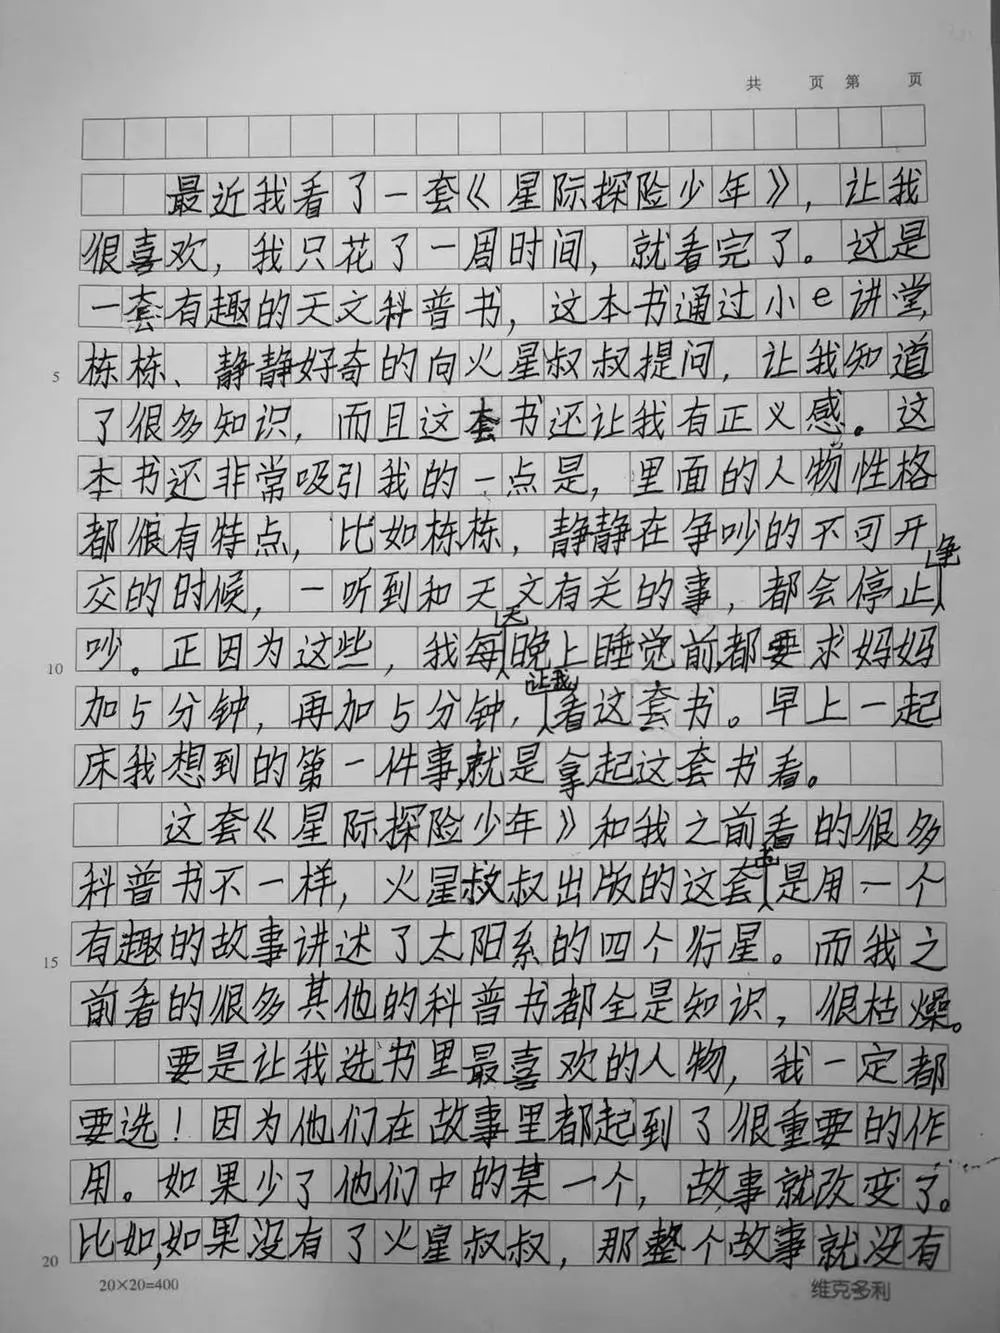 共 页 第 页
最近我看了一套《星际探险少年》，让我
很喜欢，我只花了一周时间，就看完了。这是
一套有趣的天文科普书，这本书通过小e讲堂，
5 栋栋、静静好奇的向火星叔叔提问，让我知道
了很多知识，而且这套书还让我有正义感。这
本书还非常吸引我的一点是，里面的人物性格
都很有特点，比如栋栋，静静在争吵的不可开
交的时候，一听到和天文有关的事，都会停止争
10 吵。正因为这些，我每天晚上睡觉前，都要求妈妈
加5分钟，再加5分钟，让我看这套书。早上一起
床我想到的第一件事，就是拿起这套书看。
这套《星际探险少年》和我之前看的很多
科普书不一样，火星叔叔出版的这套书是用一个
15 有趣的故事讲述了太阳系的四个行星。而我之
前看的很多其他的科普书都全是知识，很枯燥。
要是让我选书里最喜欢的人物，我一定都
要选！因为他们在故事里都起到了很重要的作
用。如果少了他们中的某一个，故事就改变了。
20 比如，如果没有了火星叔叔，那整个故事就没有
20×20=400 维克多利